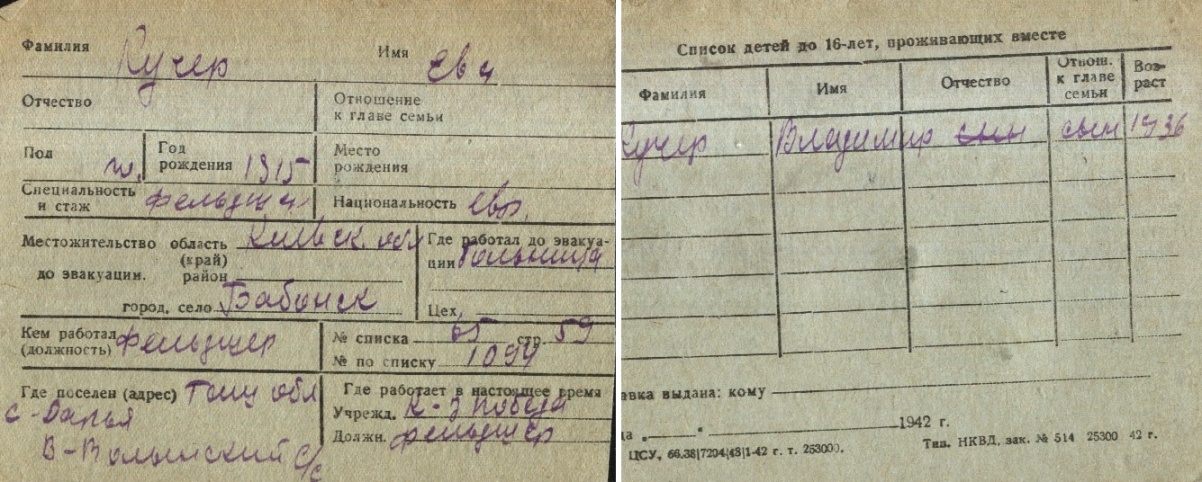 Фамилия Кучер Имя Ева
Отчество
Отношение
к главе семьи
Пол ж. Год
рождения 1915
Место
рождения
Специальность
и стаж фельдш.
Национальность евр.
Местожительство область Киевск. обл
(край)
до эвакуации. район
город, село Бабанск
Где работал до эвакуа-
ции больница
Цех,
Кем работал
(должность) фельдшер
№ списка 65 стр. 59
№ по списку 1094
Где поселен (адрес) обл
с-
В- с/с
Где работает в настоящее время
Учрежд. К-з Победа
Должн. фельдшер
Список детей до 16-лет, проживающих вместе
Фамилия Имя Отчество Отнош.
к главе
семьи Воз-
раст
Кучер Владимир сын сын 1936
авка выдана: кому
да „ " 1942 г.
ЦСУ, 66.38|7204|48|1-42 г. т. 253000. Тип. НКВД, зак. № 514 25300 42 г.